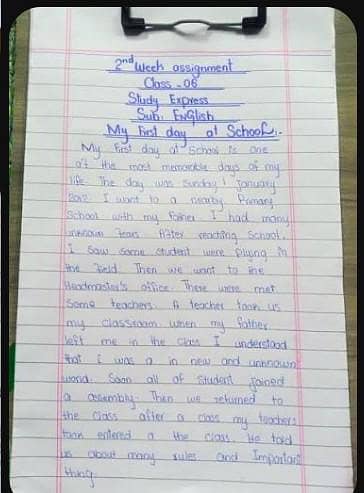 2nd Week assignment
Class - 06
Study Express
Sub: English
My First day at School:-
My First day at School is one
of the most memorable days of my
life. The day was Sunday 1 January
2012. I want to a nearby Primary
School with my father. I had many
unknown fears. After reaching School,
I saw some student were plying in
the field. Then we want to the
Headmaster's office. There were met
some teachers. A teacher tank us
my classroom. when my father
left me in the class I understood
that I was a in new and unknown
world. Soon all of student joined
a assembly. Then we returned to
the class after a class my teachers
tank entered a the class. He told
us about many rules and Important
thing